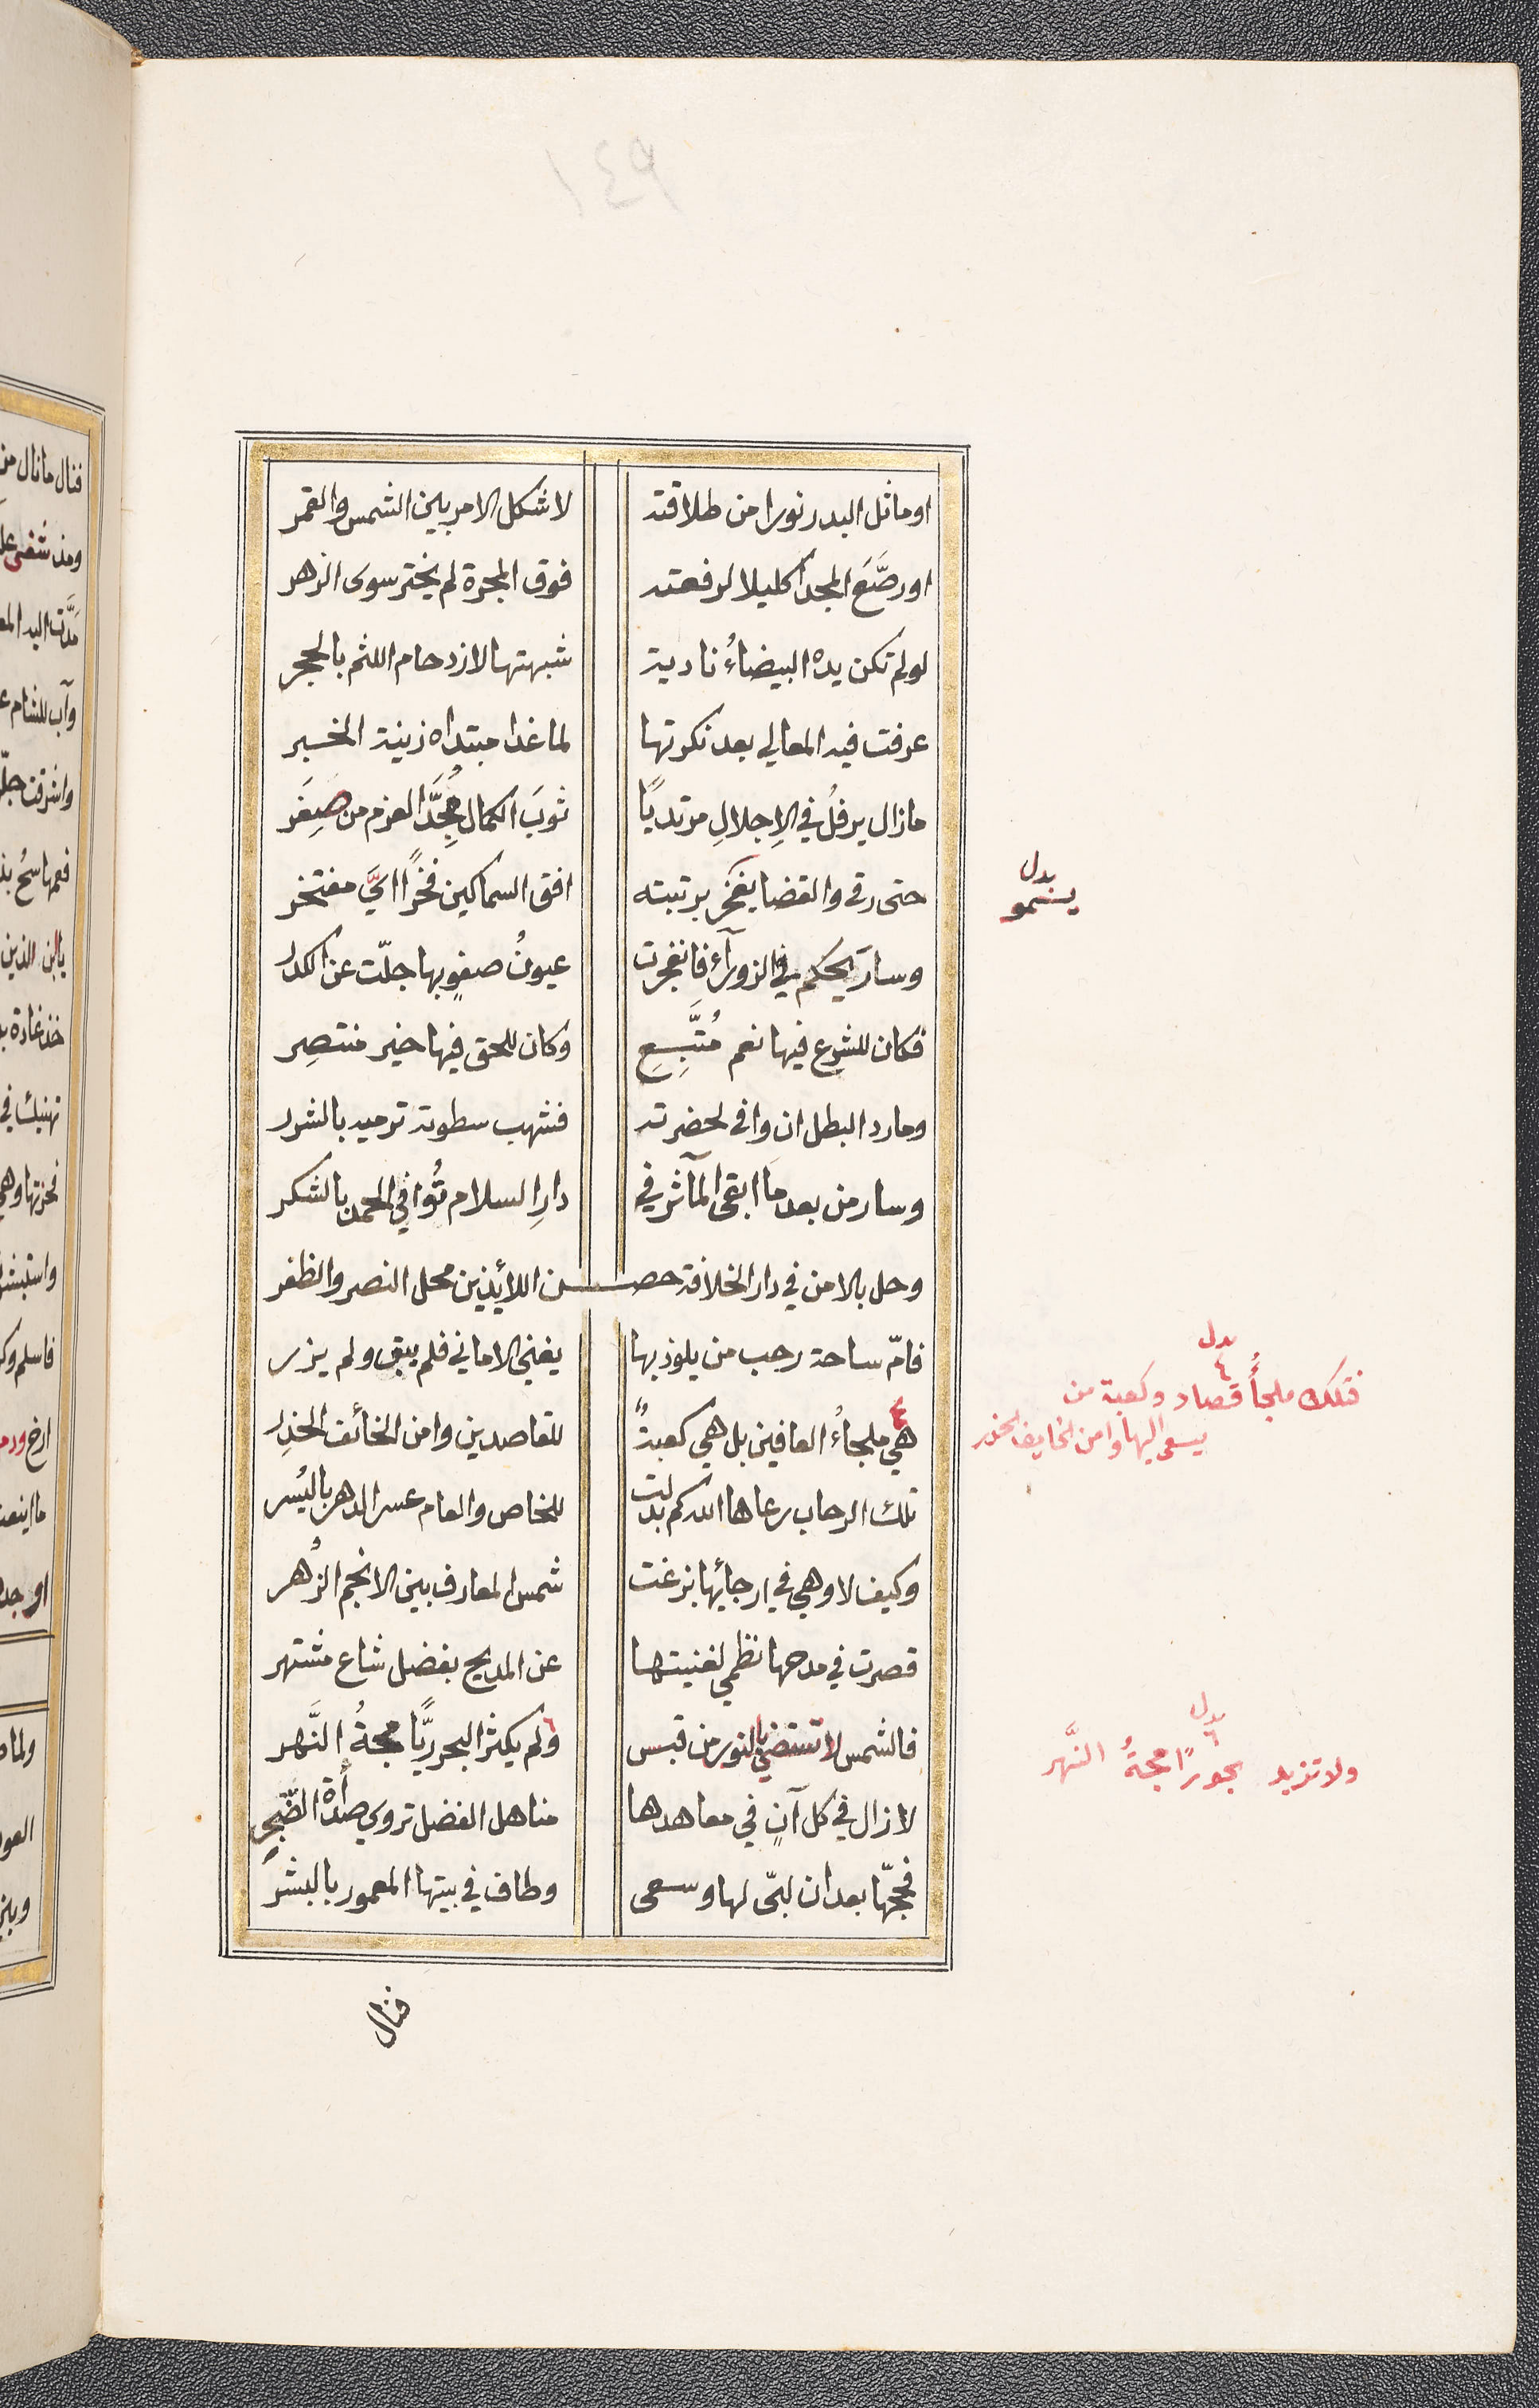 ١٤٩
او ماثل البدر نورا من طلاقته لاشكل الامر بين الشمس والقمر
او رصَّعَ المجد اكليلا لرفعته فوق المجرة لم يختر سوى الزهر
لو لم تكن يده البيضاءُ نادية شبهتها لازدحام اللثم بالحجر
عرفت فيه المعالي بعد نكرتها لما غدا مبتداه زينة الخبر
مازال يرفلُ في الإجلالِ مرتديًا ثوبَ الكمال مُجِدَّ العزم من صِغَر
حتى رقى والقضا يفخر برتبته افق السماكين فخرًا ايَّ مفتخر
بدل
يسمو
وسارَ يحكم في الزورآء فانفجرت عيونُ صفوٍ بها جلّت عن الكدر
فكان للشرع فيها نعم مُتَّبِعِ وكان للحق فيها خير منتصِر
ومارد البطل ان وافى لحضرته فشهب سطوته ترميه بالشرر
وسار من بعد ما ابقى المآثر في دارِ السلام تُوافي الحمد بالشكر
وحل بالامن في دار الخلافة حصن اللائذين محل النصر والظفر
فامّ ساحة رحب من يلوذ بها يفني الاماني فلم يبق ولم يزر
هي ملجاءُ العافين بل هي كعبةٌ للقاصدين وامن الخائف الحذِر
بدل
٤
فتلك ملجأُ قصاد وكعبة من
يسعى اليها وامن الخايف الحذر
تلك الرحاب رعاها الله كم بدلت للخاص والعام عسر الدهر باليُسر
وكيف لا وهي في ارجائها بزغت شمس المعارف بين الانجم الزُهر
قصرت في مدحها نظمي لغنيتها عن المديح بفضل شاع مشتهر
فالشمس لا تستضي بالنور من قبس ولم يكثر البحر ريًّا مجةُ النَّهر
بدل
٦
ولا تزيد بحورًا مجةُ النَّهر
لازال في كل آنٍ في معاهدها مناهل الفضل تروي صدأة الضَّجِرِ
فحجّها بعد ان لبّى لها وسعى وطاف في بيتها المعمور بالبشر
فنال